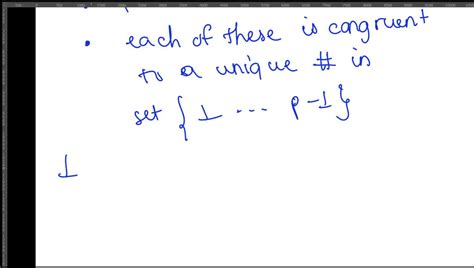 • each of these is congruent
to a unique # in
set { 1 ... p-1}
1